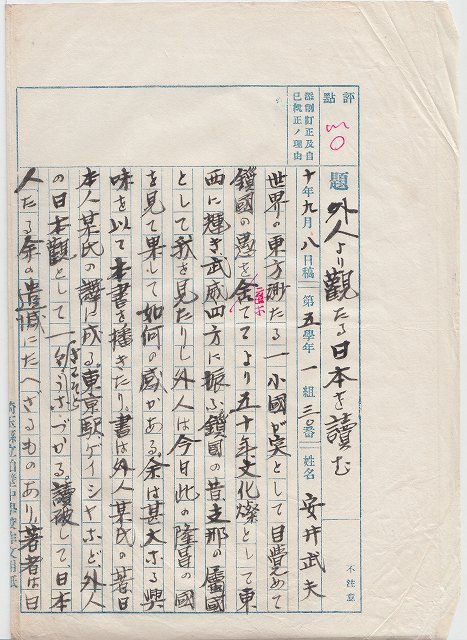 評點
30
添削訂正及自己批正ノ理由
題 外人より觀たる日本を讀む
十年九月八日稿 第五學年一組三〇番 姓名 安井武夫
不注意
世界の東方渺たる一小國ど突として目覺めて
鎖國の愚を舍ててより五十年文化燦として東
西に輝き武威四方に振ふ鎖國の昔支那の屬國
として我を見たりし外人は今日此の隆昌の國
を見て果して如何の感かある。余は甚大なる興
味を以て本書を播きたり。書は外人某氏の著日
本人某氏の譯に成る。東京駅ゲイシヤなど、外人
の日本觀として一 づかる。讀破して日本
人たる余の遺憾にたへざるものあり。著者は日